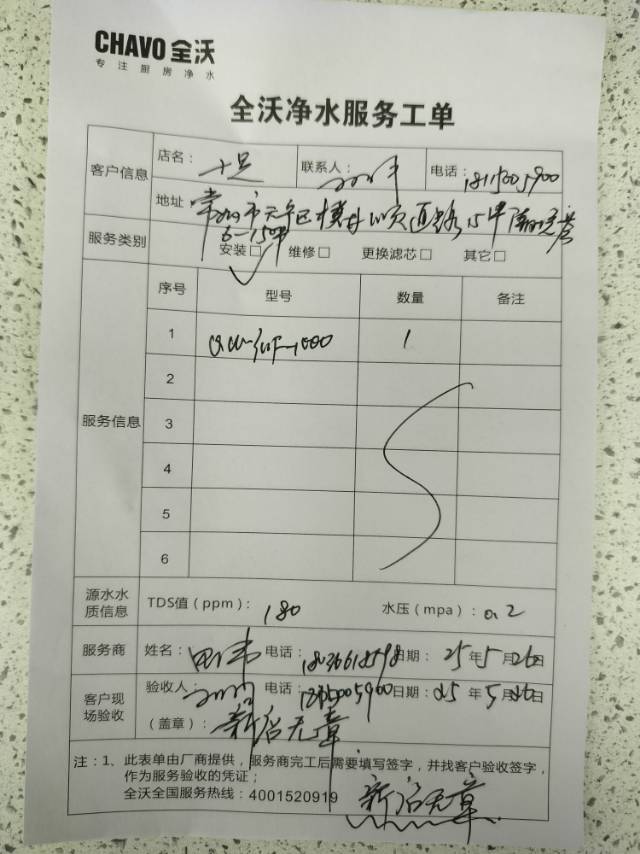 CHAVO 全沃
专注厨房净水
全沃净水服务工单
客户信息 店名： 联系人： 电话：
地址 常州市天宁区
服务类别 安装□ 维修□ 更换滤芯□ 其它□
服务信息 序号 型号 数量 备注
1 1
2
3
4
5
6
源水水质信息 TDS值（ppm）：180 水压（mpa）：0.2
服务商 姓名： 电话： 日期：25年5月26日
客户现场验收 验收人： 电话： 日期：25年5月26日
（盖章）：新店无章
注：1、此表单由厂商提供，服务商完工后需要填写签字，并找客户验收签字，
作为服务验收的凭证；
全沃全国服务热线：4001520919 新店无章